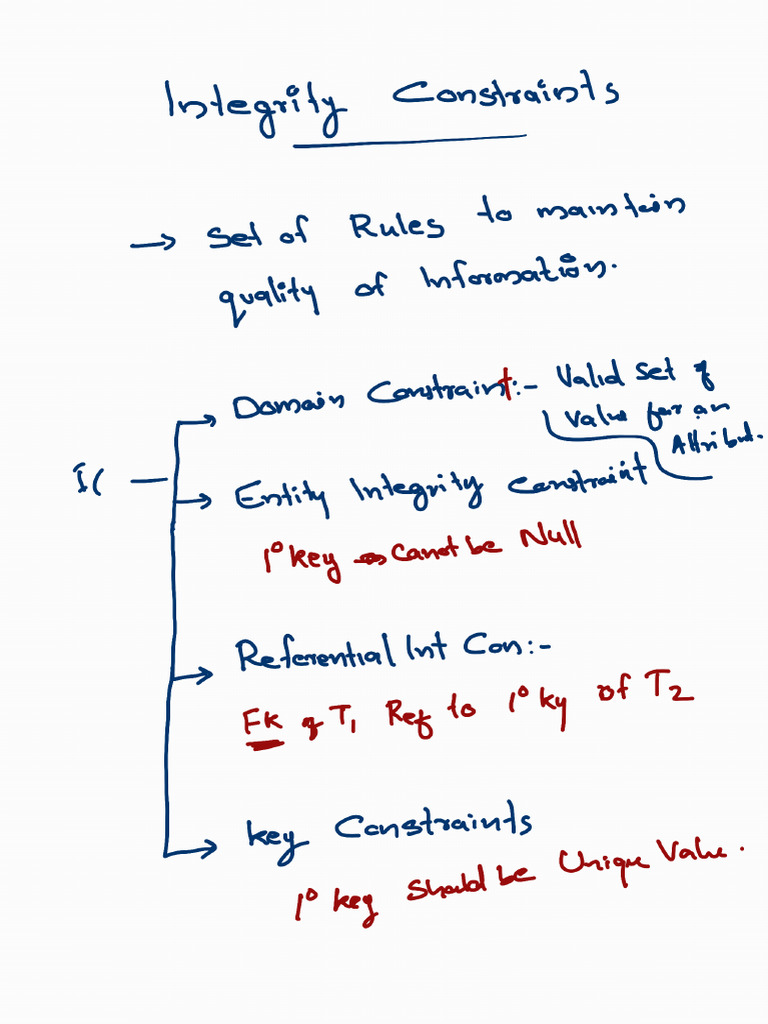 Integrity Constraints
→ Set of Rules to maintain
quality of Information.
IC
Domain Constraint:- Valid set of
Value for an
Attribut.
Entity Integrity Constraint
1° key → Canot be Null
Referential Int Con:-
FK of T1 Ref to 1° ky of T2
key Constraints
1° key Should be Unique Value.